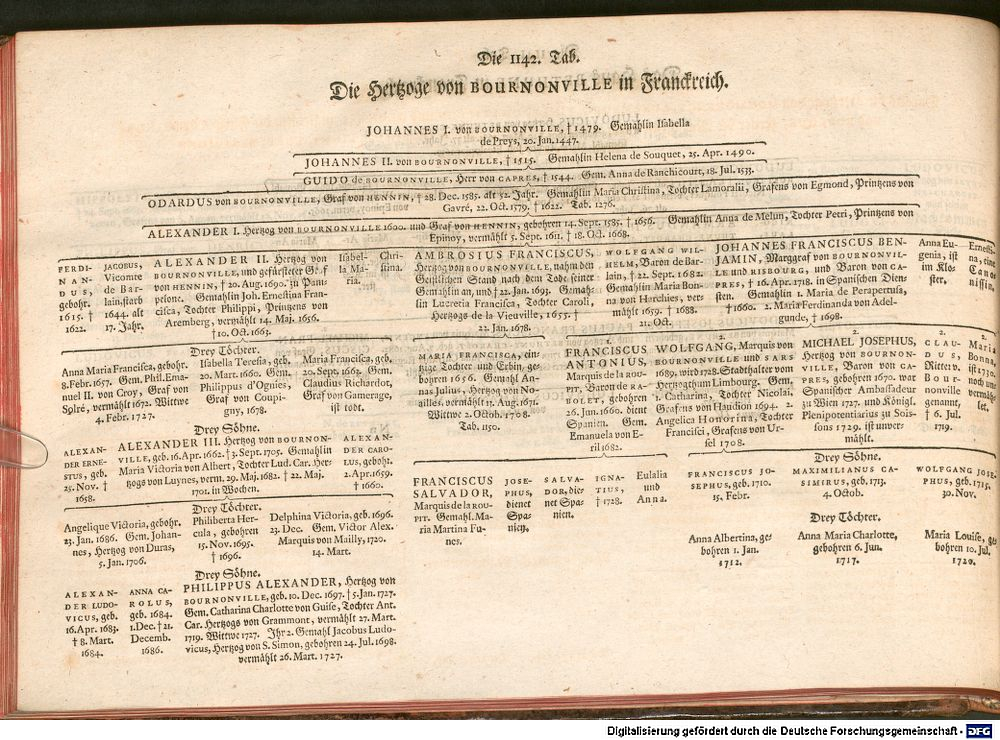 Die 1142. Tab.
Die Hertzoge von BOURNONVILLE in Franckreich.
JOHANNES I. von BOURNONVILLE, † 1479. Gemahlin Isabella
de Preys, 20. Jan. 1447.
JOHANNES II. von BOURNONVILLE, † 1515. Gemahlin Helena de Souquet, 25. Apr. 1490.
GUIDO de BOURNONVILLE, Herr von CAPRES, † 1544. Gem. Anna de Ranchicourt, 18. Jul. 1533.
ODARDUS von BOURNONVILLE, Graf von HENNIN, † 28. Dec. 1585. alt 52. Jahr. Gemahlin Maria Christina, Tochter Lamoralii, Grafens von Egmond, Printzens von
Gavre, 22. Oct. 1579. † 1622. Tab. 1276.
ALEXANDER I. Hertzog von BOURNONVILLE 1600. und Graf von HENNIN, gebohren 14. Sept. 1585. † 1656. Gemahlin Anna de Melun, Tochter Petri, Printzens von
Epinoy, vermählt 5. Sept. 1611. † 18. Oct. 1668.
FERDI-
NAN-
DUS,
gebohr.
1615. †
1622.
JACOBUS,
Vicomte
de Bar-
lain, starb
1644. alt
17. Jahr.
ALEXANDER II. Hertzog von
BOURNONVILLE, und gefürsteter Graf
von HENNIN, † 20. Aug. 1690. zu Pam-
pelone. Gemahlin Joh. Ernestina Fran-
cisca, Tochter Philippi, Printzens von
Aremberg, vermählt 14. Maj. 1656.
† 10. Oct. 1663.
Isabel-
la Ma-
ria.
Chri-
stina.
AMBROSIUS FRANCISCUS,
Hertzog von BOURNONVILLE, nahm den
Geistlichen Stand nach dem Tode seiner
Gemahlin an, und † 22. Jan. 1693. Gemah-
lin Lucretia Francisca, Tochter Caroli,
Hertzogs de la Vieuville, 1655. †
22. Jan. 1678.
WOLFGANG WIL-
HELM, Baron de Bar-
lain, † 22. Sept. 1682.
Gemahlin Maria Bon-
na von Harchies, ver-
mählt 1659. † 1688.
21. Oct.
JOHANNES FRANCISCUS BEN-
JAMIN, Marggraf von BOURNONVIL-
LE und RISBOURG, und Baron von CA-
PRES, † 16. Apr. 1718. in Spanischen Dien-
sten. Gemahlin 1. Maria de Perapertusa,
† 1660. 2. Maria Ferdinanda von Adel-
gunde, † 1698.
Anna Eu-
genia, ist
im Klo-
ster.
Ernesti-
na, eine
nissin.
Drey Töchter.
Anna Maria Francisca, gebohr.
8. Febr. 1657. Gem. Phil. Ema-
nuel II. von Croy, Graf von
Solre, vermählt 1672. Wittwe
4. Febr. 1727.
Isabella Teresia, geb.
20. Mart. 1660. Gem.
Philippus d'Ognies,
Graf von Coupi-
gny, 1678.
Maria Francisca, geb.
20. Sept. 1662. Gem.
Claudius Richardot,
Graf von Gamerage,
ist todt.
Drey Söhne.
ALEXAN-
DER ERNE-
STUS, geb.
25. Nov. †
1658.
ALEXANDER III. Hertzog von BOURNON-
VILLE, geb. 16. Apr. 1662. † 3. Sept. 1705. Gemahlin
Maria Victoria von Albert, Tochter Lud. Car. Her-
tzogs von Luynes, verm. 29. Maj. 1682. † 22. Maj.
1701. in Wochen.
ALEXAN-
DER CARO-
LUS, gebohr.
2. Apr. 1659.
† 1660.
Drey Töchter.
Angelique Victoria, gebohr.
23. Jan. 1686. Gem. Johan-
nes, Hertzog von Duras,
5. Jan. 1706.
Philiberta Her-
cula, gebohren
15. Nov. 1695.
† 1696.
Delphina Victoria, geb. 1696.
23. Dec. Gem. Victor Alex.
Marquis von Mailly, 1720.
14. Mart.
Drey Söhne.
ALEXAN-
DER LUDO-
VICUS, geb.
16. Apr. 1683.
† 8. Mart.
1684.
ANNA CA-
ROLUS,
geb. 1684.
1. Dec. † 21.
Decemb.
1686.
PHILIPPUS ALEXANDER, Hertzog von
BOURNONVILLE, geb. 10. Dec. 1697. † 5. Jan. 1727.
Gem. Catharina Charlotte von Guise, Tochter Ant.
Car. Hertzogs von Grammont, vermählt 27. Mart.
1719. Wittwe 1727. Ihr 2. Gemahl Jacobus Ludo-
vicus, Hertzog von S. Simon, gebohren 24. Jul. 1698.
vermählt 26. Mart. 1727.
MARIA FRANCISCA, ein-
tzige Tochter und Erbin, ge-
bohren 1656. Gemahl An-
nas Julius, Hertzog von No-
ailles, vermählt 13. Aug. 1671.
Wittwe 2. Octob. 1708.
Tab. 1150.
1.
FRANCISCUS
ANTONIUS,
Marquis de la ROU-
PIT, Baron de RA-
BOLET, gebohren
26. Jun. 1660. dient
Spanien. Gem.
Emanuela von E-
ril 1682.
2.
WOLFGANG, Marquis von
BOURNONVILLE und SARS
1689. wird 1728. Stadthalter vom
Hertzogthum Limbourg. Gem.
1. Catharina, Tochter Nicolai,
Grafens von Haudion 1694. 2.
Angelica Honorina, Tochter
Francisci, Grafens von Ur-
sel 1708.
2.
MICHAEL JOSEPHUS,
Hertzog von BOURNON-
VILLE, Baron von CA-
PRES, gebohren 1670. war
Spanischer Ambassadeur
zu Wien 1727. und Königl.
Plenipotentiarius zu Sois-
sons 1729. ist unver-
mählt.
2.
CLAU-
DIUS,
Ritter v.
Bour-
nonville
genannt,
† 6. Jul.
1719.
2.
Maria
Bonna,
ist 1730.
noch un-
vermäh-
let.
FRANCISCUS
SALVADOR,
Marquis de la ROU-
PIT. Gemahl. Ma-
ria Martina Fu-
nes.
JOSE-
PHUS,
dienet
Spa-
nien.
SALVA-
DOR, die-
net Spa-
nien.
IGNA-
TIUS,
† 1728.
Eulalia
und
Anna.
Drey Söhne.
FRANCISCUS JO-
SEPHUS, geb. 1710.
15. Febr.
MAXIMILIANUS CA-
SIMIRUS, geb. 1713.
4. Octob.
WOLFGANG JOSE-
PHUS, geb. 1715.
30. Nov.
Drey Töchter.
Anna Albertina, ge-
bohren 1. Jan.
1712.
Anna Maria Charlotte,
gebohren 6. Jun.
1717.
Maria Louise, ge-
bohren 10. Jul.
1720.
Digitalisierung gefördert durch die Deutsche Forschungsgemeinschaft - DFG